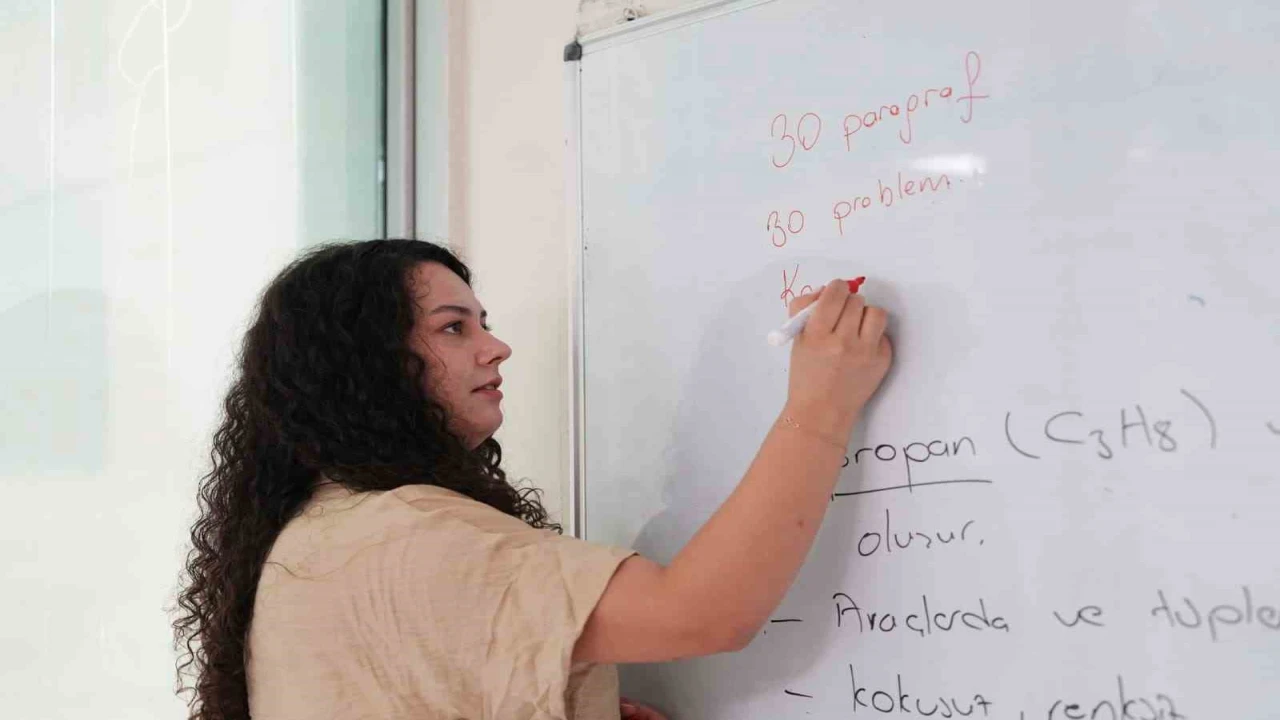 30 paragraf
30 problem
propan (C3H8)
oluşur.
- Araçlarda ve
- kokusuz, renksiz